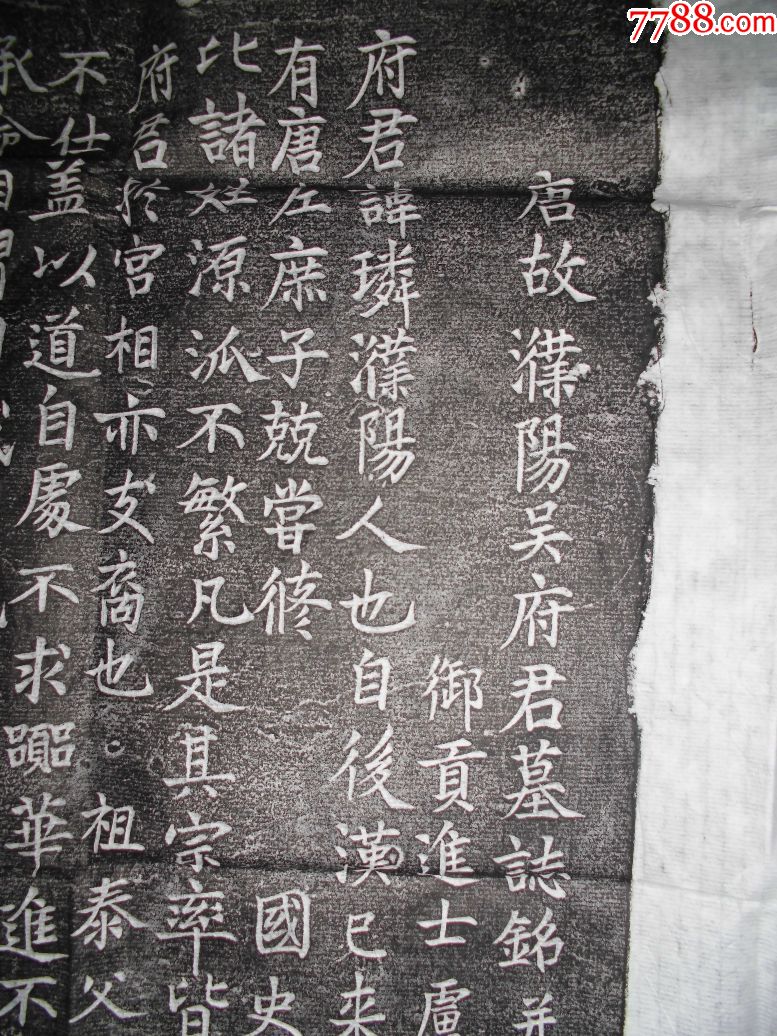 7788.com
唐故濮陽吴府君墓誌銘并
御貢進士盧
府君諱璘濮陽人也自後漢已来
有唐左庶子兢嘗修 國史
比諸姓源泒不繁凡是其宗率皆
府君扵宫相亦支裔也 祖泰父
不仕盖以道自處不求躁華進不
承命自